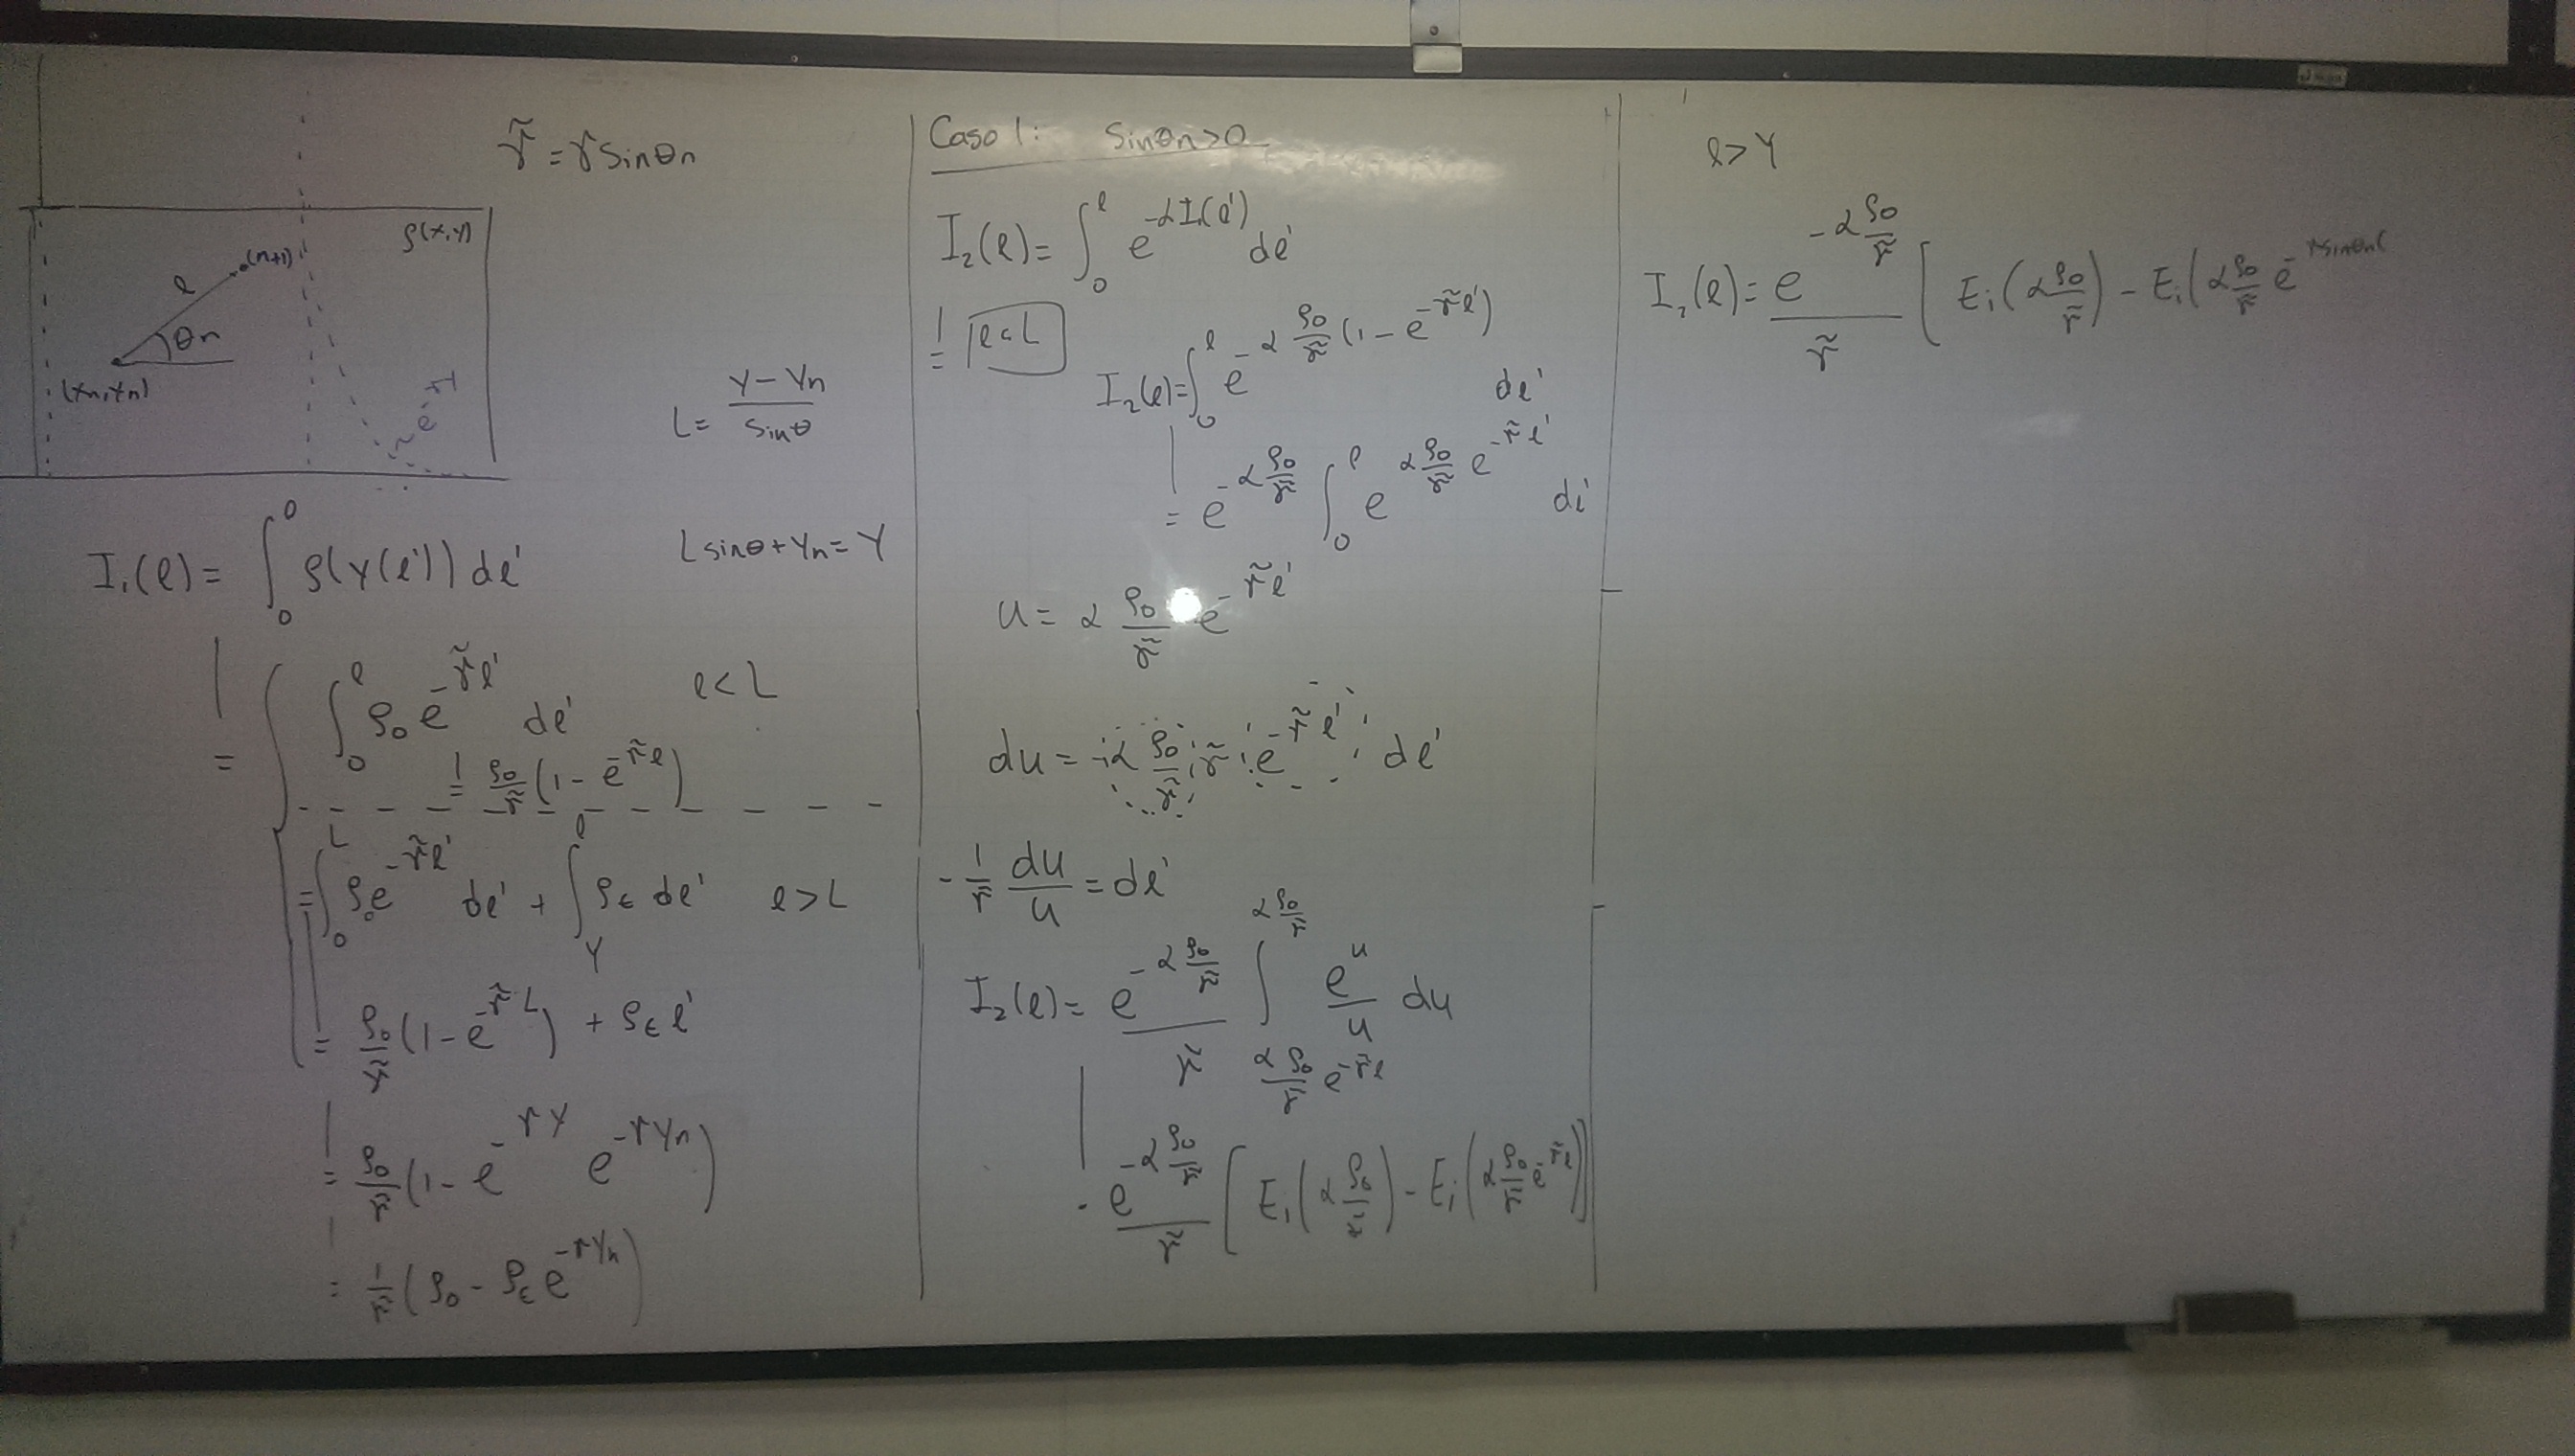 γ̃ = γ sinθn
ρ(x,y)
(n+1)
l
θn
(xn, yn)
e^{-γY}
L = (Y - Yn) / sinθ
L sinθ + Yn = Y
I₁(l) = ∫₀^l ρ(y(l')) dl'
= ∫₀^l ρ₀ e^{-γ̃l'} dl' l < L
= ρ₀/γ̃ (1 - e^{-γ̃l})
= ∫₀^L ρ₀ e^{-γ̃l'} dl' + ∫_Y^l ρ_ε dl' l > L
= ρ₀/γ̃ (1 - e^{-γ̃L}) + ρ_ε l'
= ρ₀/γ̃ (1 - e^{-γY} e^{-γYn})
= 1/γ̃ (ρ₀ - ρ_ε e^{-γYn})
Caso 1: sinθn > 0
I₂(l) = ∫₀^l e^{-αI₁(l')} dl'
= l < L
I₂(l) = ∫₀^l e^{-α ρ₀/γ̃ (1 - e^{-γ̃l'})} dl'
= e^{-α ρ₀/γ̃} ∫₀^l e^{α ρ₀/γ̃ e^{-γ̃l'}} dl'
u = α ρ₀/γ̃ e^{-γ̃l'}
du = -α ρ₀/γ̃ γ̃ e^{-γ̃l'} dl'
- 1/γ̃ du/u = dl'
I₂(l) = e^{-α ρ₀/γ̃} / γ̃ ∫_{α ρ₀/γ̃ e^{-γ̃l}}^{α ρ₀/γ̃} e^u/u du
= e^{-α ρ₀/γ̃} / γ̃ [Ei(α ρ₀/γ̃) - Ei(α ρ₀/γ̃ e^{-γ̃l})]
l > Y
I₂(l) = e^{-α ρ₀/γ̃} / γ̃ [Ei(α ρ₀/γ̃) - Ei(α ρ₀/γ̃ e^{-γ sinθn(